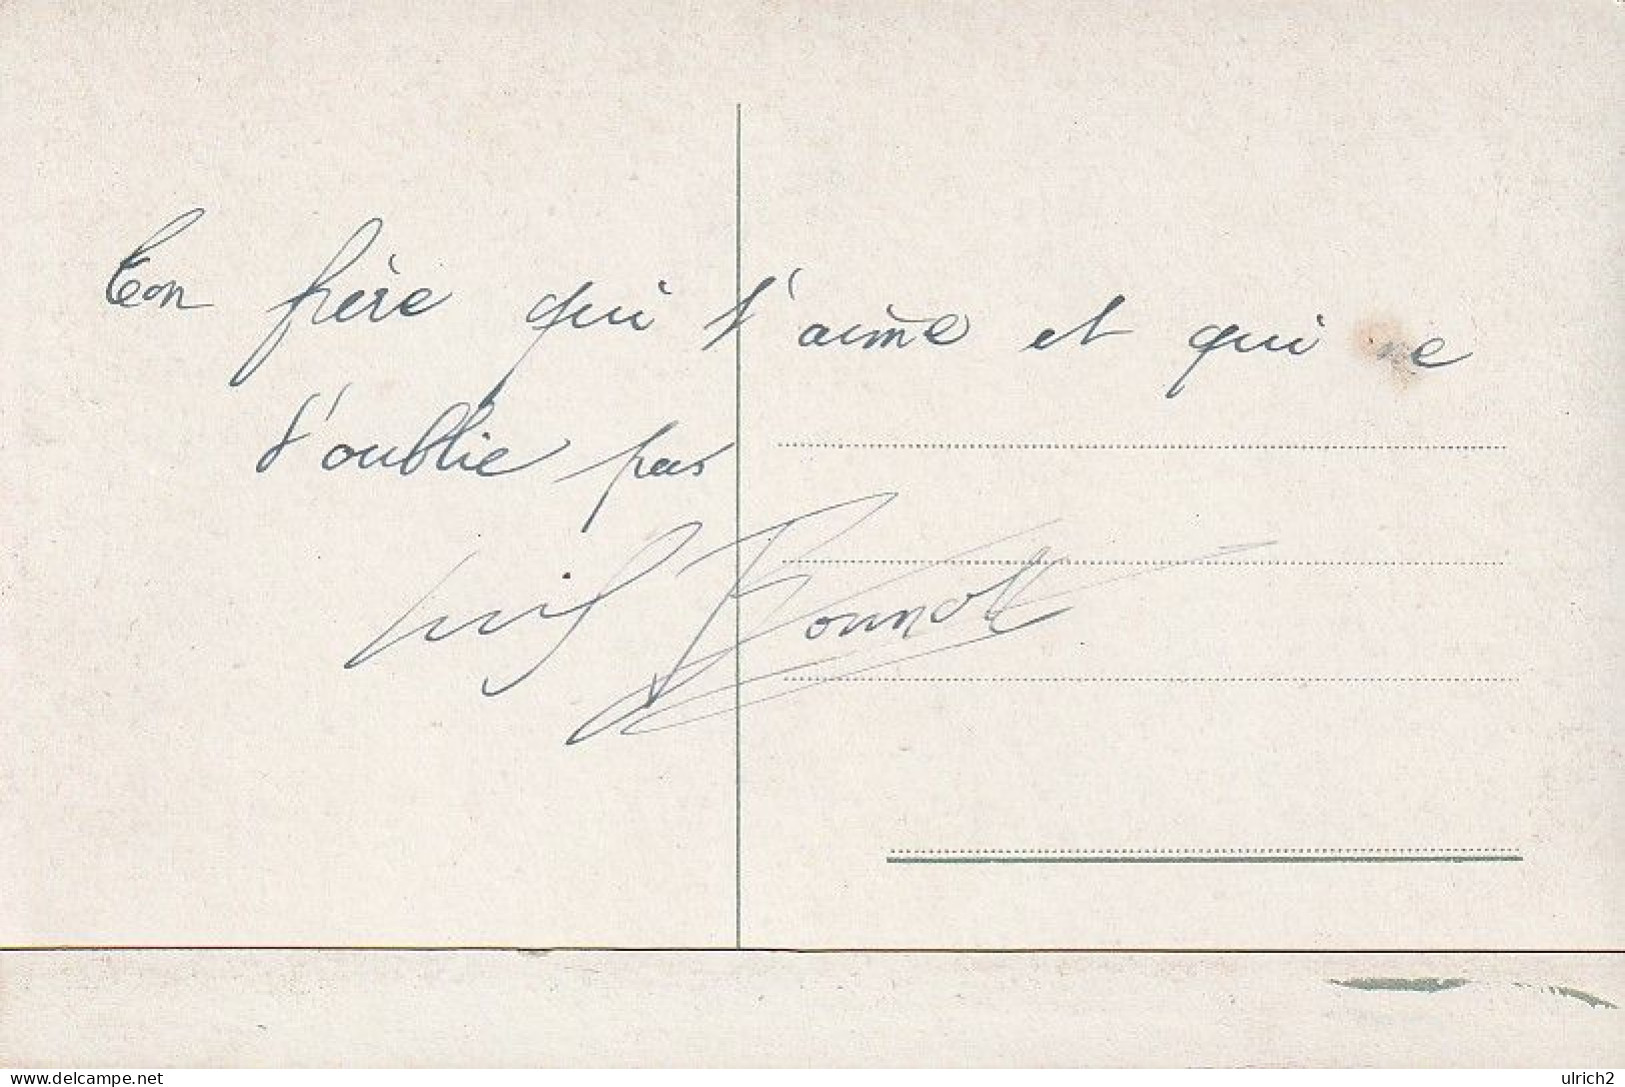 Ton frère qui t'aime et qui ne
t'oublie pas
Bonnott
delcampe.net
ulrich2